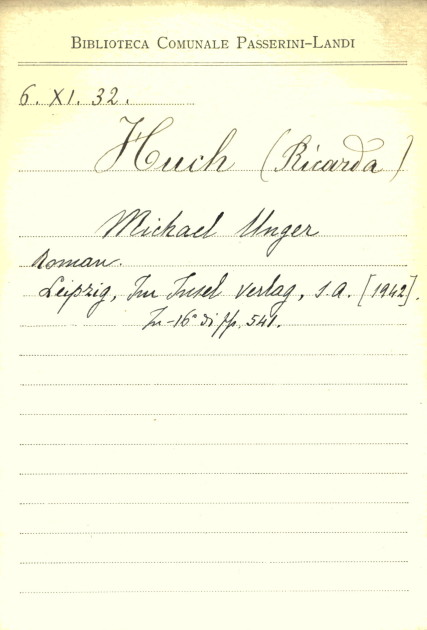 BIBLIOTECA COMUNALE PASSERINI–LANDI
6. XI. 32.
Huch (Ricarda)
Michael Unger
Roman.
Leipzig, Im Insel verlag, s.a. [1942].
In-16° di pp. 541.